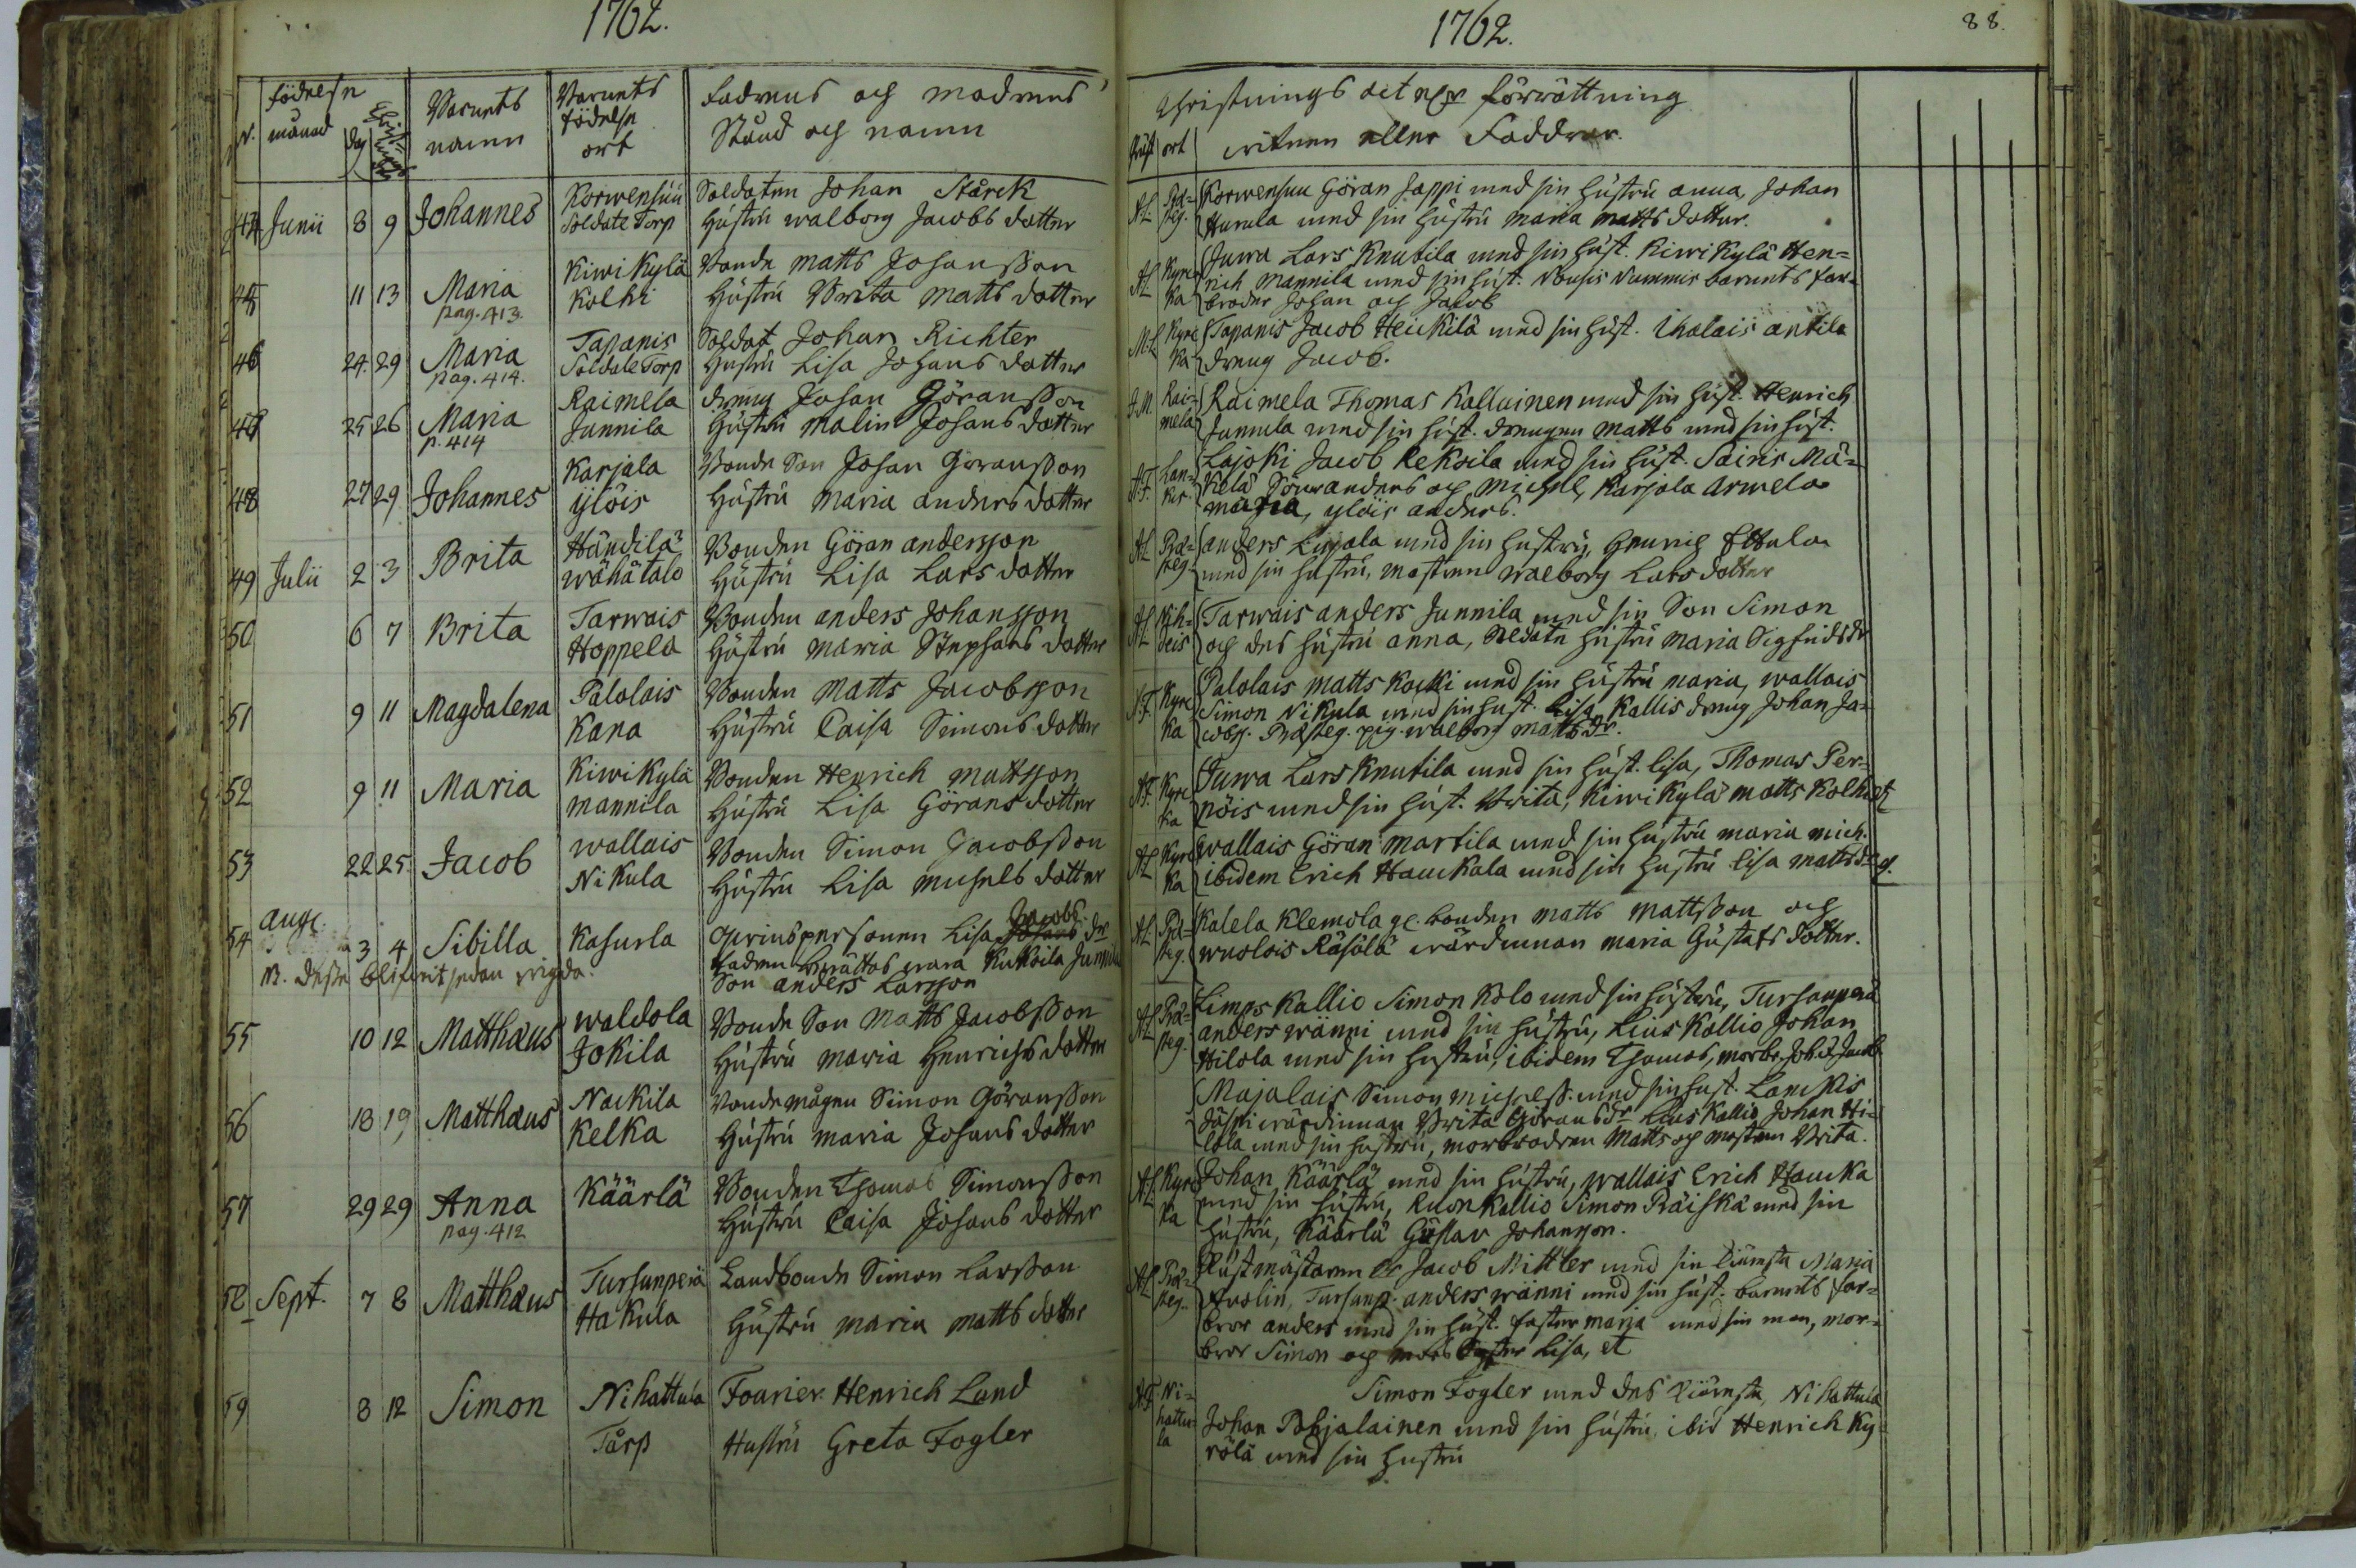 1762.
födelse
månad
N.
dag
Barnets
namn
Barnets
födelse
ort
Fadrens och modrens
Stånd och namn
44 Junii 8 9 Johannes
Korwensuu
Soldate Torp
Soldaten Johan Stårck
Hustru walborg Jacobs dotter
45 11 13 Maria
pag. 413.
Kiwikylä
Kolhi
Bonde Matts Johansson
Hustru Brita Matts dotter
46 24. 29 Maria
pag. 414.
Tapanis
Soldate Torp
Soldat Johan Richter
Hustru Lisa Johans dotter
25 26 Maria
p. 414
Raimela
Junnila
dreng Johan Göransson
Hustru Malin Johans dotter
48 27 29 Johannes
Karjala
ylöis
Bonde Son Johan Göransson
Hustru Maria anders dotter
49 Julii 2 3 Brita
Händilä
wähätalo
Bonden Göran andersson
Hustru Lisa Lars dotter
50 6 7 Brita
Tarwais
Hoppela
Bonden anders Johansson
Hustru Maria Stephans dotter
51 9 11 Magdalena
Palolais
Kana
Bonden Matts Jacobsson
Hustru Caisa Simons dotter
52 9 11 Maria
Kiwikylä
mannila
Bonden Henrich mattsson
Hustru Lisa Görans dotter
53 22 25. Jacob
wallais
Nikula
Bonden Simon Jacobsson
Hustru Lisa michels dotter
54 aug. 3 4 Sibilla
Kasurla
Qwinspersonen Lisa Jacobs dr
fadren berättas wara Kukoila Junnila
Son anders Larsson
NB. desse blifwit sedan wigda.
55 10 12 Matthæus
waldola
Jokila
Bonde Son Matts Jacobsson
Hustru maria Henrichs dotter
56 18 19 Matthæus
Nackila
Kelka
Bondemågen Simon Göransson
Hustru maria Johans dotter
57 29 29 Anna
pag. 412
Käärlä
Bonden Thomas Simonsson
Hustru Caisa Johans dotter
58 Sept. 7 8 Matthæus
Tursunperä
Hakula
Landbonde Simon Larsson
Hustru maria matts dotter
59 8 12 Simon
Nihattula
Tårp
Fourier Henrich Lund
Hustru Greta Fogler
1762.
88.
Christnings förrättning
ort
witnen eller Faddrar.
AL Præsteg.
Korwensuu Göran Jappi med sin hustru anna, Johan
Hunula med sin hustru maria matts dotter.
AL Kyrcka
Juwa Lars Knutila med sin hust. Kiwikylä Hen=
rich Mannila med sin hust. Nousis Nummis barnets far=
broder Johan och Jacob
ML Kyrcka
Tapanis Jacob Heickilä med sin hust. Ihalais antila
dreng Jacob.
Raimela
Raimela Thomas Kallainen med sin hust. Henrich
Junnila med sin hust. drengen Matts med sin hust.
Lajoki Jacob Rekoila med sin hust. Sairis Mä=
kelä Söner anders och Michel, Karjala Armelas
maria, ylöis anders.
AL Præsteg
anders Lirjala med sin hustru, Henrich Ettala
med sin hustru, mostren walborg Lars dotter
AL
Tarwais anders Junnila med sin Son Simon
och des hustru anna, Soldate hustru maria Sigfrids dr
Kyrcka
Palolais matts Kocki med sin hustru maria, wallais
Simon Nikula med sin hust. Lisa, Kallis dreng Johan Ja=
cobs. Præsteg. pig. walborg matts dr.
Kyrcka
Juwa Lars Knutila med sin hust. lisa, Thomas Per=
nöis med sin hust. Brita, Kiwikylä matts Kolhi
AL Kyrcka
wallais Göran martila med sin hustru maria mich.
ibidem Erich Hauckala med sin hustru lisa matts dr
AL Præsteg.
Kalela Klemola gl. bonden matts mattsson och
wuolois Räsälä wärdinnan maria Gustafs dotter.
AL Præsteg.
Limos Kallio Simon Kolo med sin hustru, Tursunperä
anders wänni med sin hustru, Lius Kallio Johan
Hilola med sin hustru, ibidem Thomas, morbr. Joh. & Jacob
Majalais Simon michelss. med sin hust. Lauckis
Jäspi wärdinnan Brita Görans dr Lius Kallio Johan Hi=
lola med sin hustru, morbrodren Matts och mostren Brita.
AL Kyrcka
Johan Käärlä med sin hustru, wallais Erich Haucka
med sin hustru, Ruonkallio Simon Räiskä med sin
hustru, Käärlä Gustav Johansson.
AL Præsteg.
Rustmästaren Jacob Mittler med sin kiäresta Maria
Avolin, Tursunp. anders wänni med sin hust. barnets far=
bror anders med sin hust. faster maria med sin man, mor=
bror Simon och mors Syster Lisa, et
Nihattula
Simon Fogler med des kiäresta, Nihattula
Johan Pohjalainen med sin hustru, ibid Henrich Ky=
rölä med sin hustru